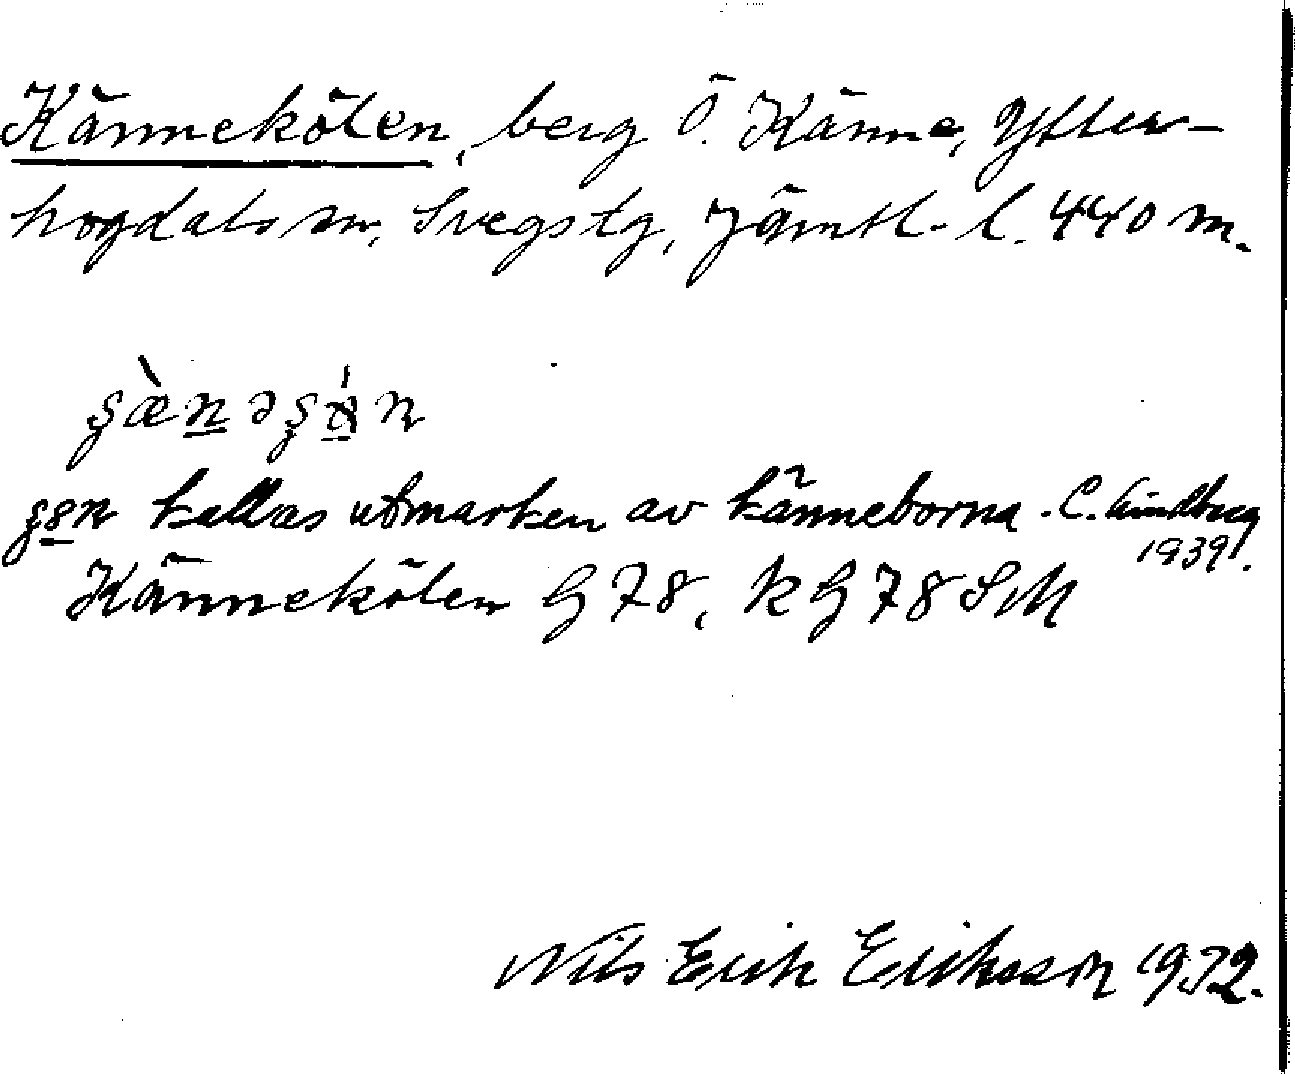 Kännekölen, berg Ö. Känne, Ytter-
hogdals sn, Svegs tg, Jämtl. l. 440 m.
kallas utmarken av Känneborna. C. Lindberg
1939.
Kännekölen G 78, k G 78 SM
Nils Erik Eriksson 1932.